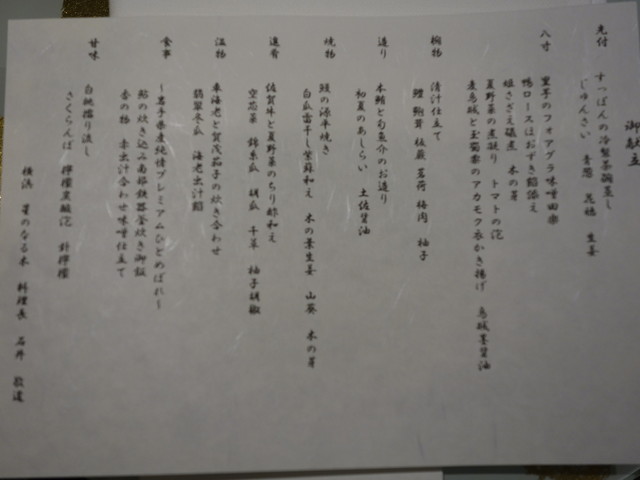 御献立
先付
すっぽんの冷製茶碗蒸し
じゅんさい 青葱 花穂 生姜
八寸
里芋のフォアグラ味噌田楽
鴨ロースほおずき餡添え
姫さざえ磯煮 木の芽
夏野菜の煮凝り トマトの泡
麦烏賊と玉蜀黍のアカモク衣かき揚げ 烏賊墨醤油
椀物
清汁仕立て
鱧 鮑茸 梅肉 柚子
造り
本鮪と旬魚介のお造り
初夏のあしらい 土佐醤油
焼物
白瓜雷干し紫蘇和え 木の葉生姜 山葵 木の芽
進肴
佐賀牛と夏野菜のちり酢和え
空芯菜 錦糸瓜 胡瓜 柚子胡椒
温物
車海老と賀茂茄子の炊き合わせ
翡翠冬瓜 海老出汁餡
食事
〜岩手県産純情プレミアムひとめぼれ〜
の炊き込み南部鉄器釜炊き御飯
香の物 赤出汁合わせ味噌仕立て
甘味
白桃擂り流し
さくらんぼ 檸檬
横浜 星のなる木 料理長 石井